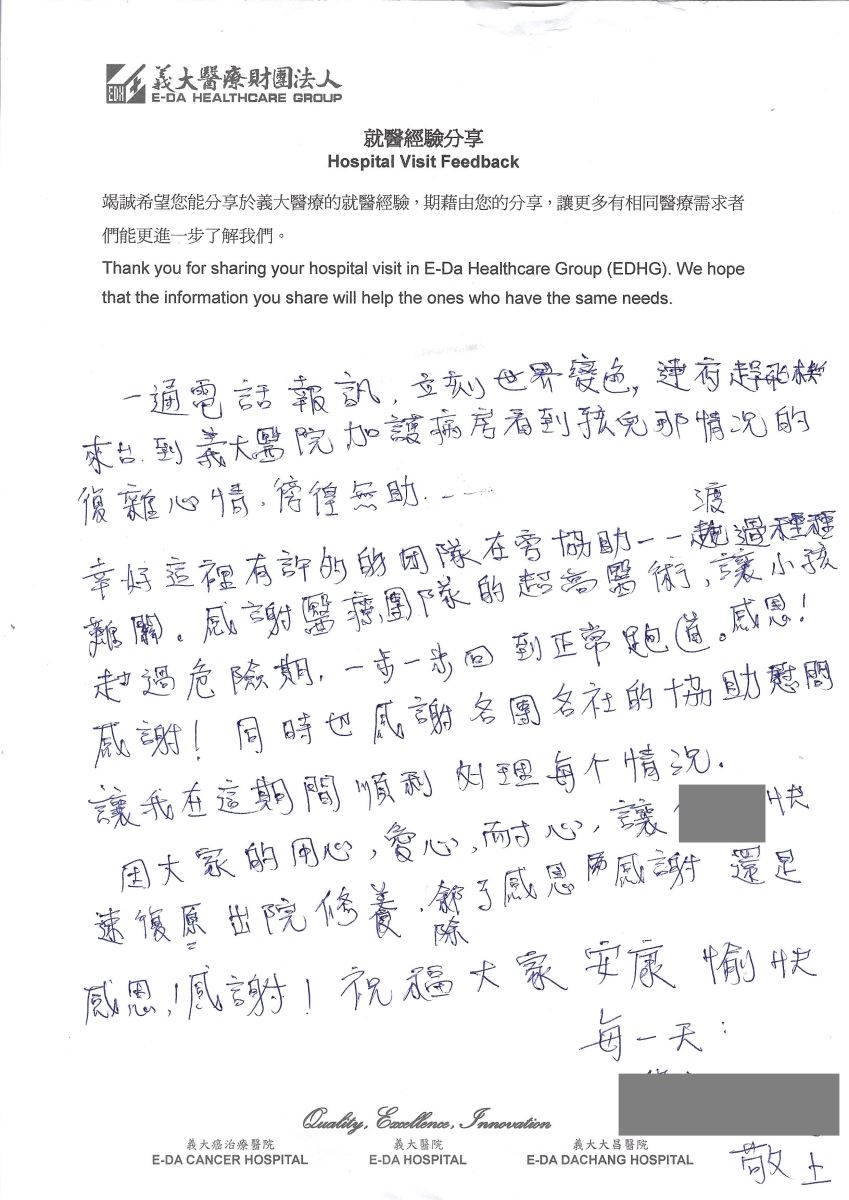 義大醫療財團法人
EDH E-DA HEALTHCARE GROUP
就醫經驗分享
Hospital Visit Feedback
竭誠希望您能分享於義大醫療的就醫經驗，期藉由您的分享，讓更多有相同醫療需求者
們能更進一步了解我們。
Thank you for sharing your hospital visit in E-Da Healthcare Group (EDHG). We hope
that the information you share will help the ones who have the same needs.
一通電話報訊，立刻世界變色，連夜趕飛機
來台.到義大醫院加護病房看到孩兒那情況的
復雜心情.徬徨無助.——
渡
幸好這裡有許的的团隊在旁協助——過種種
難關。感謝醫療團隊的超高醫術，讓小孩
越過危險期，一步一步回到正常跑道。感恩！
感謝！同時也感謝各團各社的協助慰問
讓我在這期間順利处理每个情況.
因大家的用心，愛心，耐心，讓 快
速復原出院修養.除了感恩感謝還是
除
感恩，！感謝！祝福大家安康愉快
每一天：
敬上
Quality, Excellence, Innovation
義大癌治療醫院 義大醫院 義大大昌醫院
E-DA CANCER HOSPITAL E-DA HOSPITAL E-DA DACHANG HOSPITAL